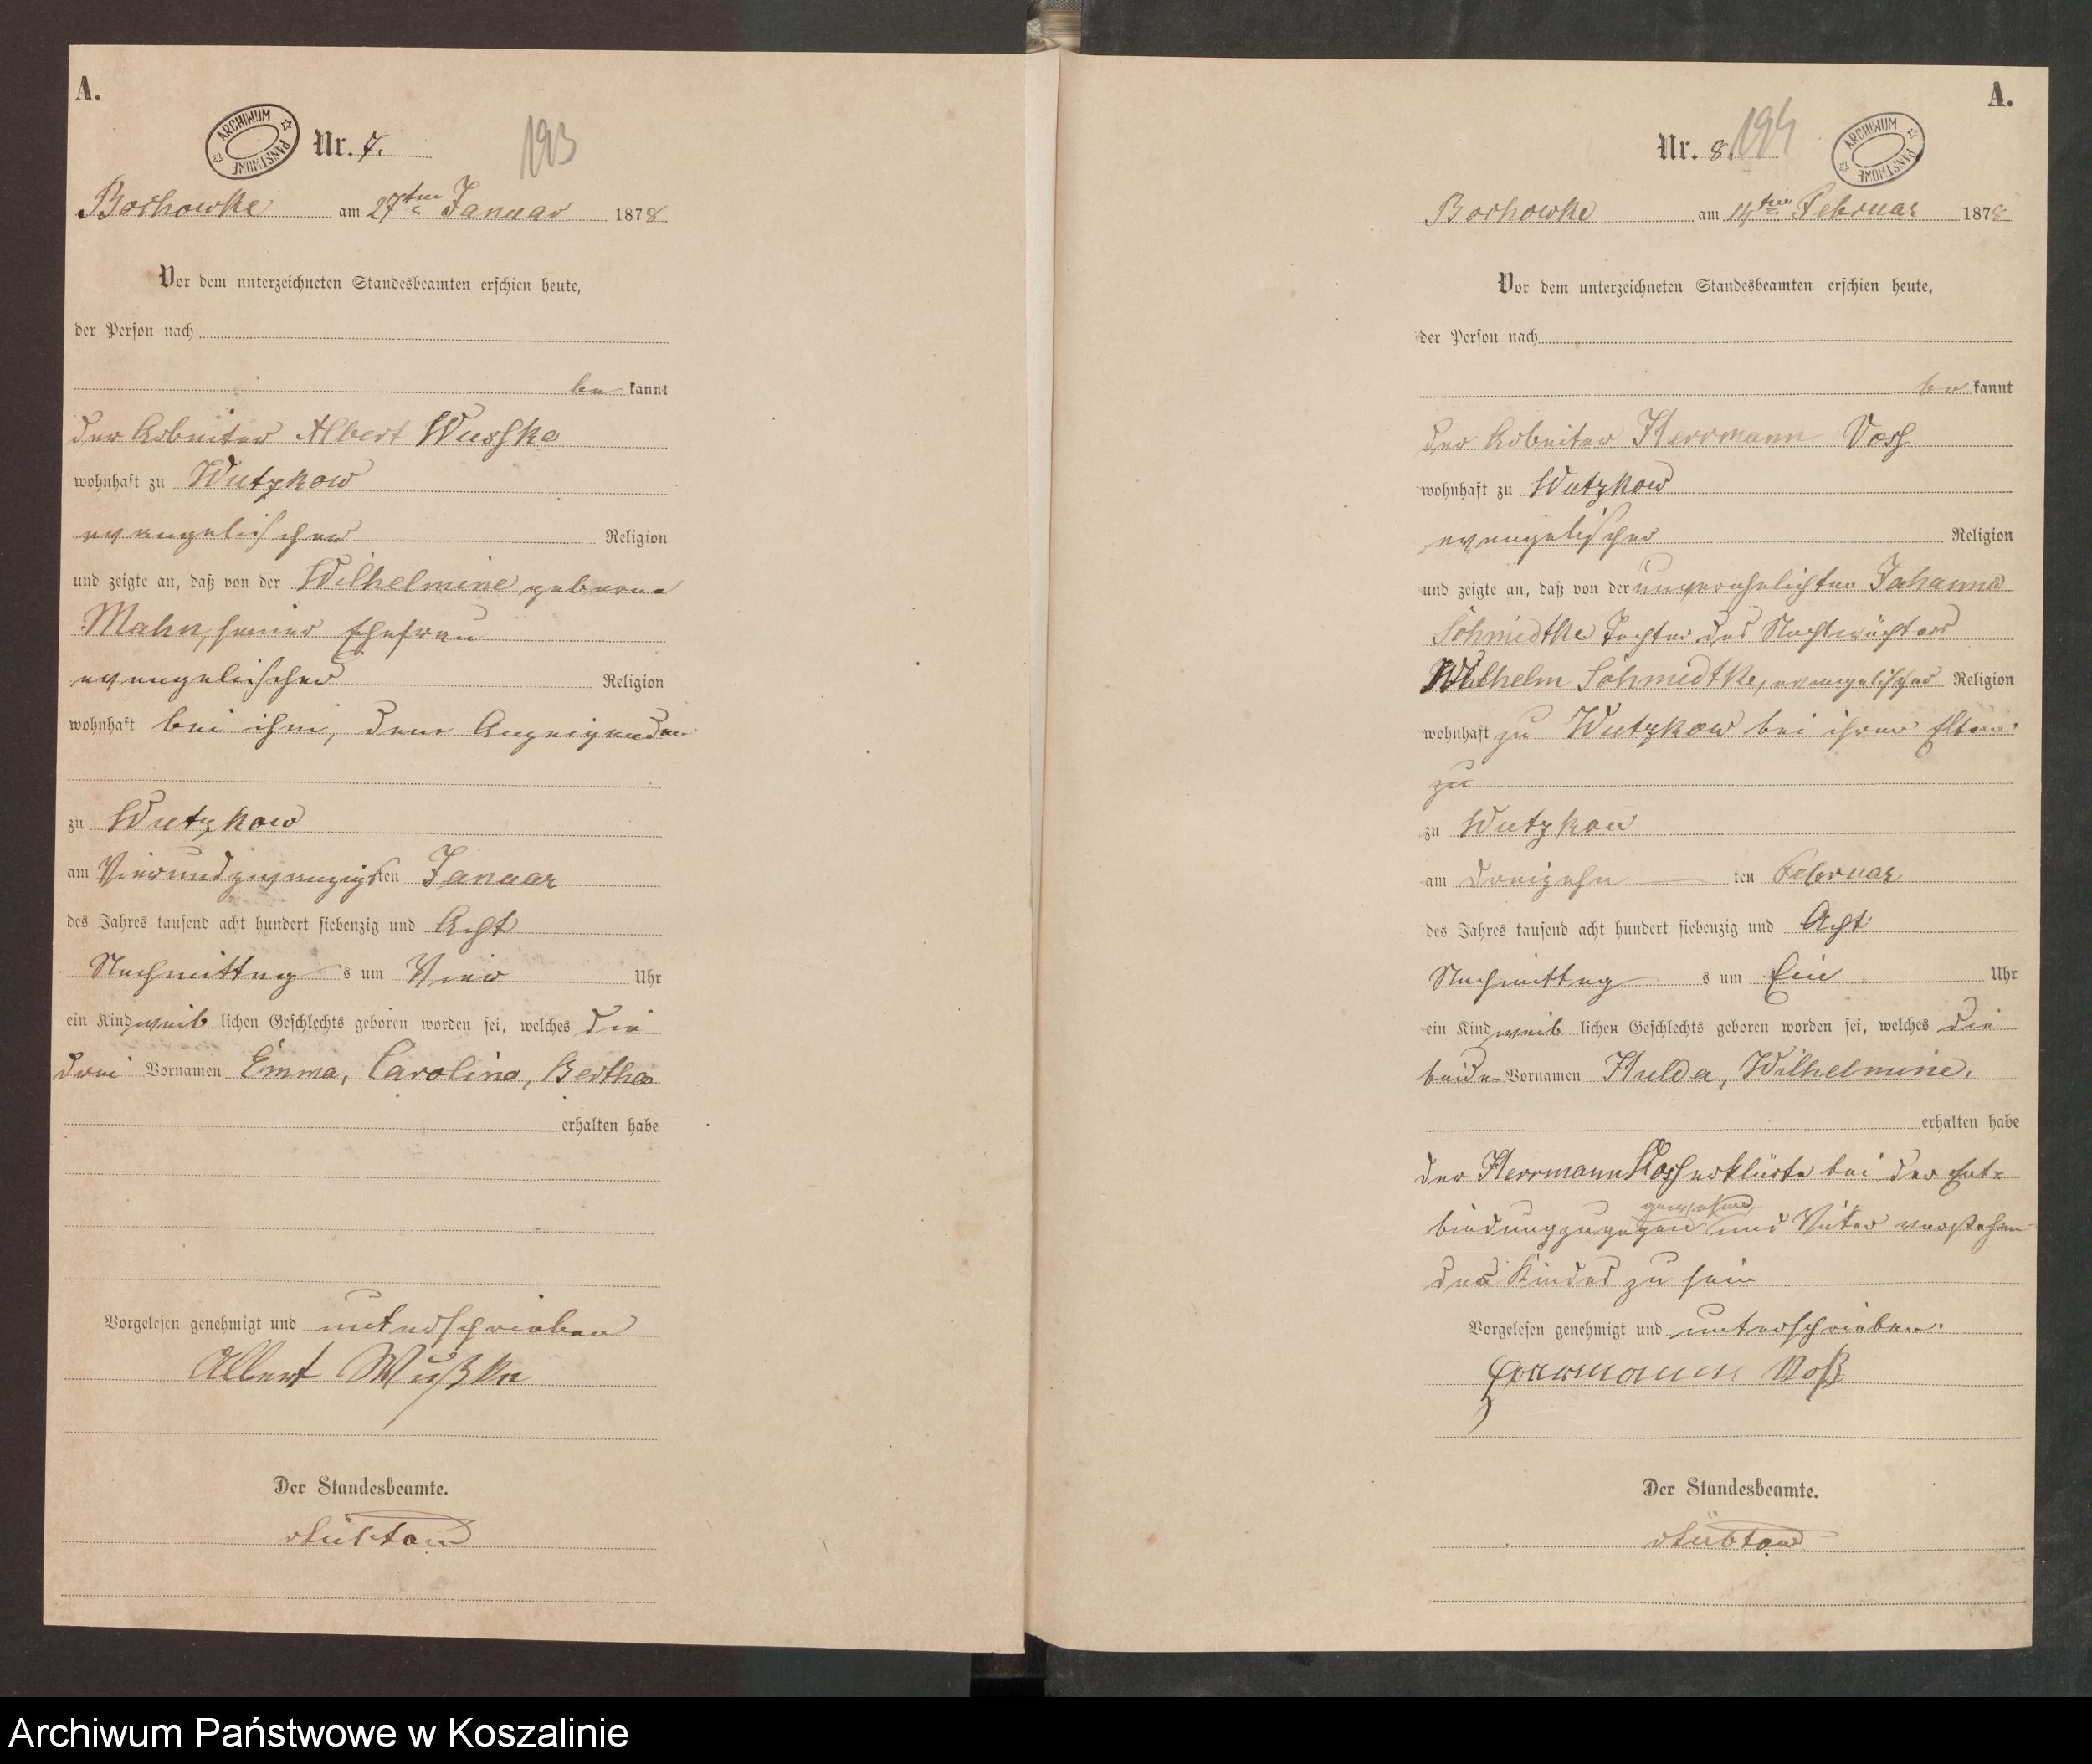 A.
ARCHIWUM PAŃSTWOWE
Nr. 7.
193
Bochowke am 27ten Januar 1878
Vor dem unterzeichneten Standesbeamten erschien heute,
der Person nach
be kannt
der Arbeiter Albert Wusske
wohnhaft zu Wutzkow
evangelischer Religion
und zeigte an, daß von der Wilhelmine geborne
Mahn, seiner Ehefrau
evangelischer Religion
wohnhaft bei ihm, dem Anzeigenden
zu Wutzkow
am Vierundzwanzigsten Januar
des Jahres tausend acht hundert siebenzig und Acht
Nachmittag s um Vier Uhr
ein Kind weib lichen Geschlechts geboren worden sei, welches die
drei Vornamen Emma, Caroline, Bertha
erhalten habe
Vorgelesen genehmigt und unterschrieben
Albert Wußke
Der Standesbeamte.
Stübtow
A.
Nr. 8.
194
ARCHIWUM PAŃSTWOWE
Bochowke am 14ten Februar 1878
Vor dem unterzeichneten Standesbeamten erschien heute,
der Person nach
be kannt
der Arbeiter Herrmann Voss
wohnhaft zu Wutzkow
evangelischer Religion
und zeigte an, daß von der unverehelichten Johanna
Schmidtke Tochter des Nachtwächters
Wilhelm Schmidtke, evangelischer Religion
wohnhaft zu Wutzkow bei ihren Eltern
zu
zu Wutzkow
am dreizehn ten Februar
des Jahres tausend acht hundert siebenzig und Acht
Nachmittag s um Ein Uhr
ein Kind weib lichen Geschlechts geboren worden sei, welches die
beiden Vornamen Hulda, Wilhelmine.
erhalten habe
der Herrmann Voss erklärte bei der Ent=
gewesen
bindung zugegen und Vater
des Kindes zu sein
Vorgelesen genehmigt und unterschrieben.
Herrmann Voß
Der Standesbeamte.
Stübtow
Archiwum Państwowe w Koszalinie